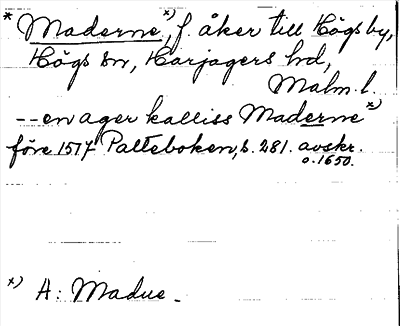 * Maderne, x) f. åker till Högsby,
Högs sn, Harjagers hd,
Malm. l.
-- en ager kalliss Maderne x)
före 1517 Palteboken, s. 281. avskr.
o. 1650.
x) A: Madue.